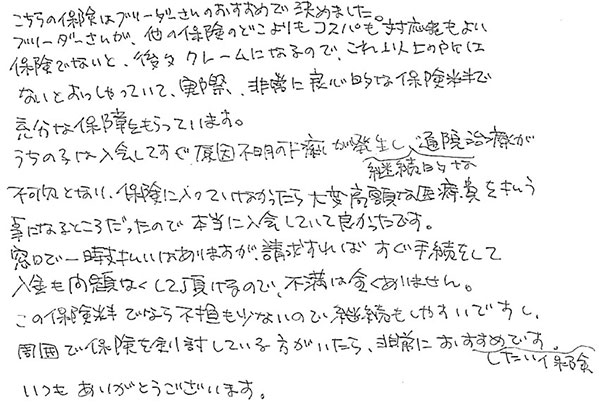 こちらの保険はブリーダーさんのおすすめで決めました。
ブリーダーさんが、他の保険のどこよりもコスパも対応もよい
保険でないと、後々クレームになるので、これ以上の所は
ないとおっしゃっていて、実際、非常に良心的な保険料で
充分な保障をもらっています。
うちの子は入会してすぐ原因不明の下痢が発生し、通院治療が
継続的な
不可欠となり、保険に入っていなかったら大変高額な医療費を払う
事になるところだったので本当に入会していて良かったです。
窓口で一時払いはありますが、請求すればすぐ手続をして
入金も問題なくして頂けるので、不満は全くありません。
この保険料でなら不担も少ないので継続もしやすいですし、
周囲で保険を検討している方がいたら、非常におすすめです。
したい保険
いつもありがとうございます。